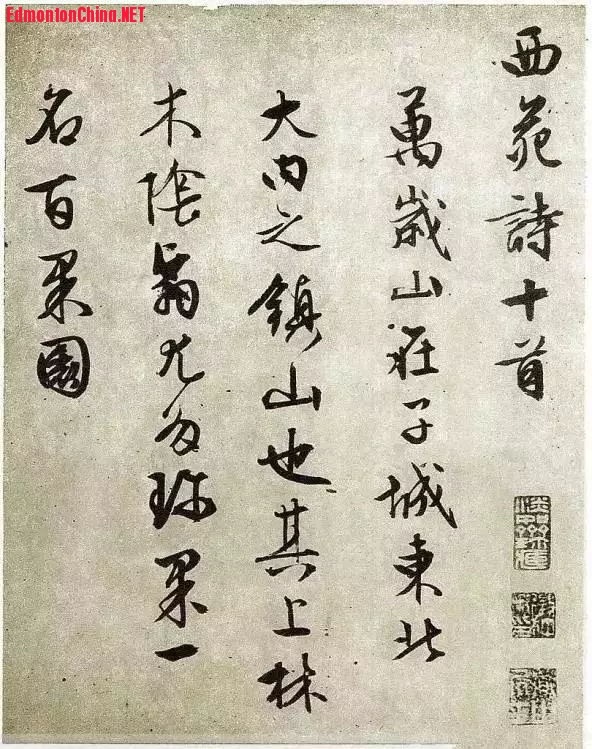 EdmontonChina.NET
西苑詩十首
萬歲山在子城東北
大内之鎮山也其上林
木陰翳尤多珍果一
名百果園